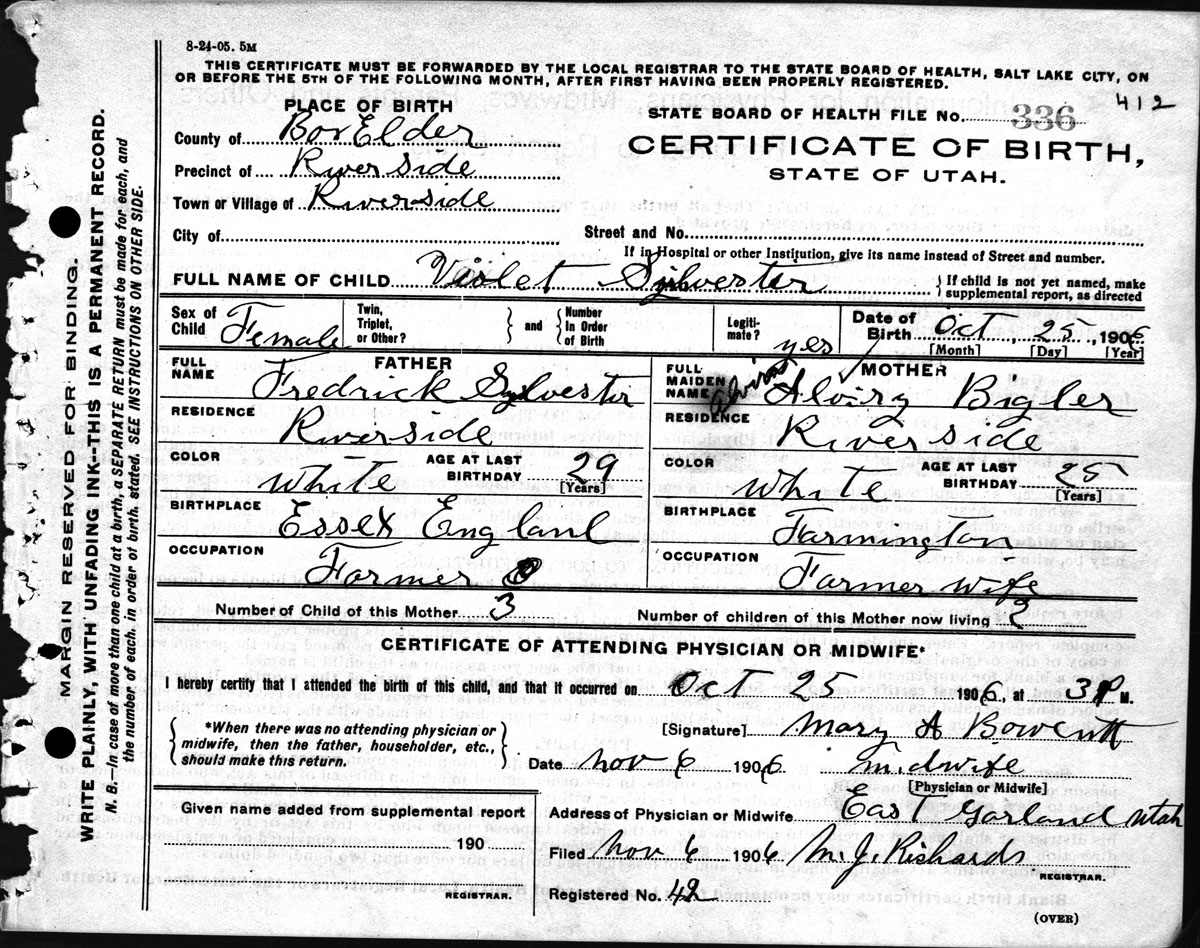 8-24-05. 5M
THIS CERTIFICATE MUST BE FORWARDED BY THE LOCAL REGISTRAR TO THE STATE BOARD OF HEALTH, SALT LAKE CITY, ON
OR BEFORE THE 5TH OF THE FOLLOWING MONTH, AFTER FIRST HAVING BEEN PROPERLY REGISTERED.
412
PLACE OF BIRTH
STATE BOARD OF HEALTH FILE No. 336
County of Box Elder
CERTIFICATE OF BIRTH,
STATE OF UTAH.
Precinct of Riverside
Town or Village of Riverside
City of
Street and No.
If in Hospital or other Institution, give its name instead of Street and number.
FULL NAME OF CHILD Violet Sylvester
If child is not yet named, make
supplemental report, as directed
Sex of Child Female
Twin, Triplet, or Other?
and
Number In Order of Birth
Legitimate? yes
Date of Birth Oct, 25, 1906
[Month] [Day] [Year]
FATHER
FULL NAME Fredrick Sylvester
RESIDENCE Riverside
COLOR White
AGE AT LAST BIRTHDAY 29
[Years]
BIRTHPLACE Essex England
OCCUPATION Farmer
MOTHER
FULL MAIDEN NAME Alviry Bigler
RESIDENCE Riverside
COLOR White
AGE AT LAST BIRTHDAY 25
[Years]
BIRTHPLACE Farmington
OCCUPATION Farmer wife
Number of Child of this Mother 3
Number of children of this Mother now living 2
CERTIFICATE OF ATTENDING PHYSICIAN OR MIDWIFE*
I hereby certify that I attended the birth of this child, and that it occurred on Oct 25 1906 at 3 P M.
*When there was no attending physician or
midwife, then the father, householder, etc.,
should make this return.
[Signature] Mary A Bowcutt
Date Nov 6 1906 Midwife
[Physician or Midwife]
Given name added from supplemental report
190
REGISTRAR.
Address of Physician or Midwife East Garland Utah
Filed Nov 6 1906 M. J. Richards
REGISTRAR.
Registered No. 42
(OVER)
MARGIN RESERVED FOR BINDING.
WRITE PLAINLY, WITH UNFADING INK--THIS IS A PERMANENT RECORD.
N. B.—In case of more than one child at a birth, a SEPARATE RETURN must be made for each, and
the number of each, in order of birth, stated. SEE INSTRUCTIONS ON OTHER SIDE.